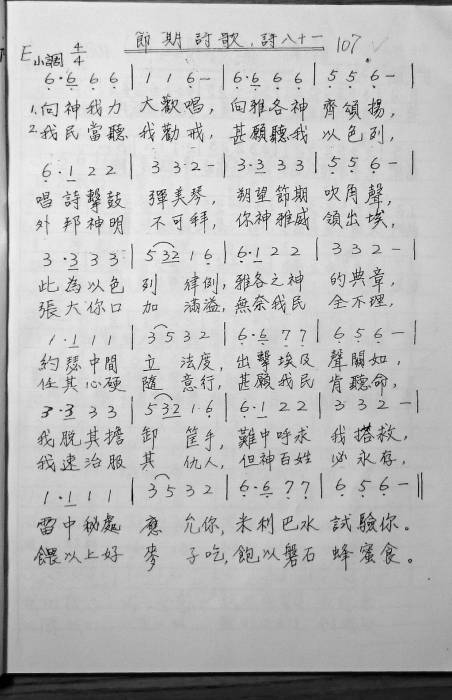 節期詩歌.詩八十一 107
E小調 4/4
6·6 6 6 | 1 1 6 – | 6·6 6 6 | 5 5 6 – |
1.向神我力 大歡唱, 向雅各神 齊頌揚,
2.我民當聽 我勸戒, 甚願聽我 以色列,
6·1 2 2 | 3 3 2 – | 3·3 3 3 | 5 5 6 – |
唱詩擊鼓 彈美琴, 朔望節期 吹角聲,
外邦神明 不可拜, 你神雅威 領出埃,
3·3 3 3 | 5 32 1 6 | 6·1 2 2 | 3 3 2 – |
此為以色 列 律例, 雅各之神 的典章,
張大你口 加 滿溢, 無奈我民 全不理,
1·1 1 1 | 3 5 3 2 | 6·6 7 7 | 6 5 6 – |
約瑟中間 立 法度, 出擊埃及 聲闢如,
任其心硬 隨 意行, 甚願我民 肯聽命,
3·3 3 3 | 5 32 1·6 | 6·1 2 2 | 3 3 2 – |
我脫其擔 卸 筐手, 難中呼求 我搭救,
我速治服 其 仇人, 但神百姓 必永存,
1·1 1 1 | 3 5 3 2 | 6·6 7 7 | 6 5 6 – ‖
雷中秘處 應 允你, 米利巴水 試驗你。
餵以上好 麥 子吃, 飽以磐石 蜂蜜食。